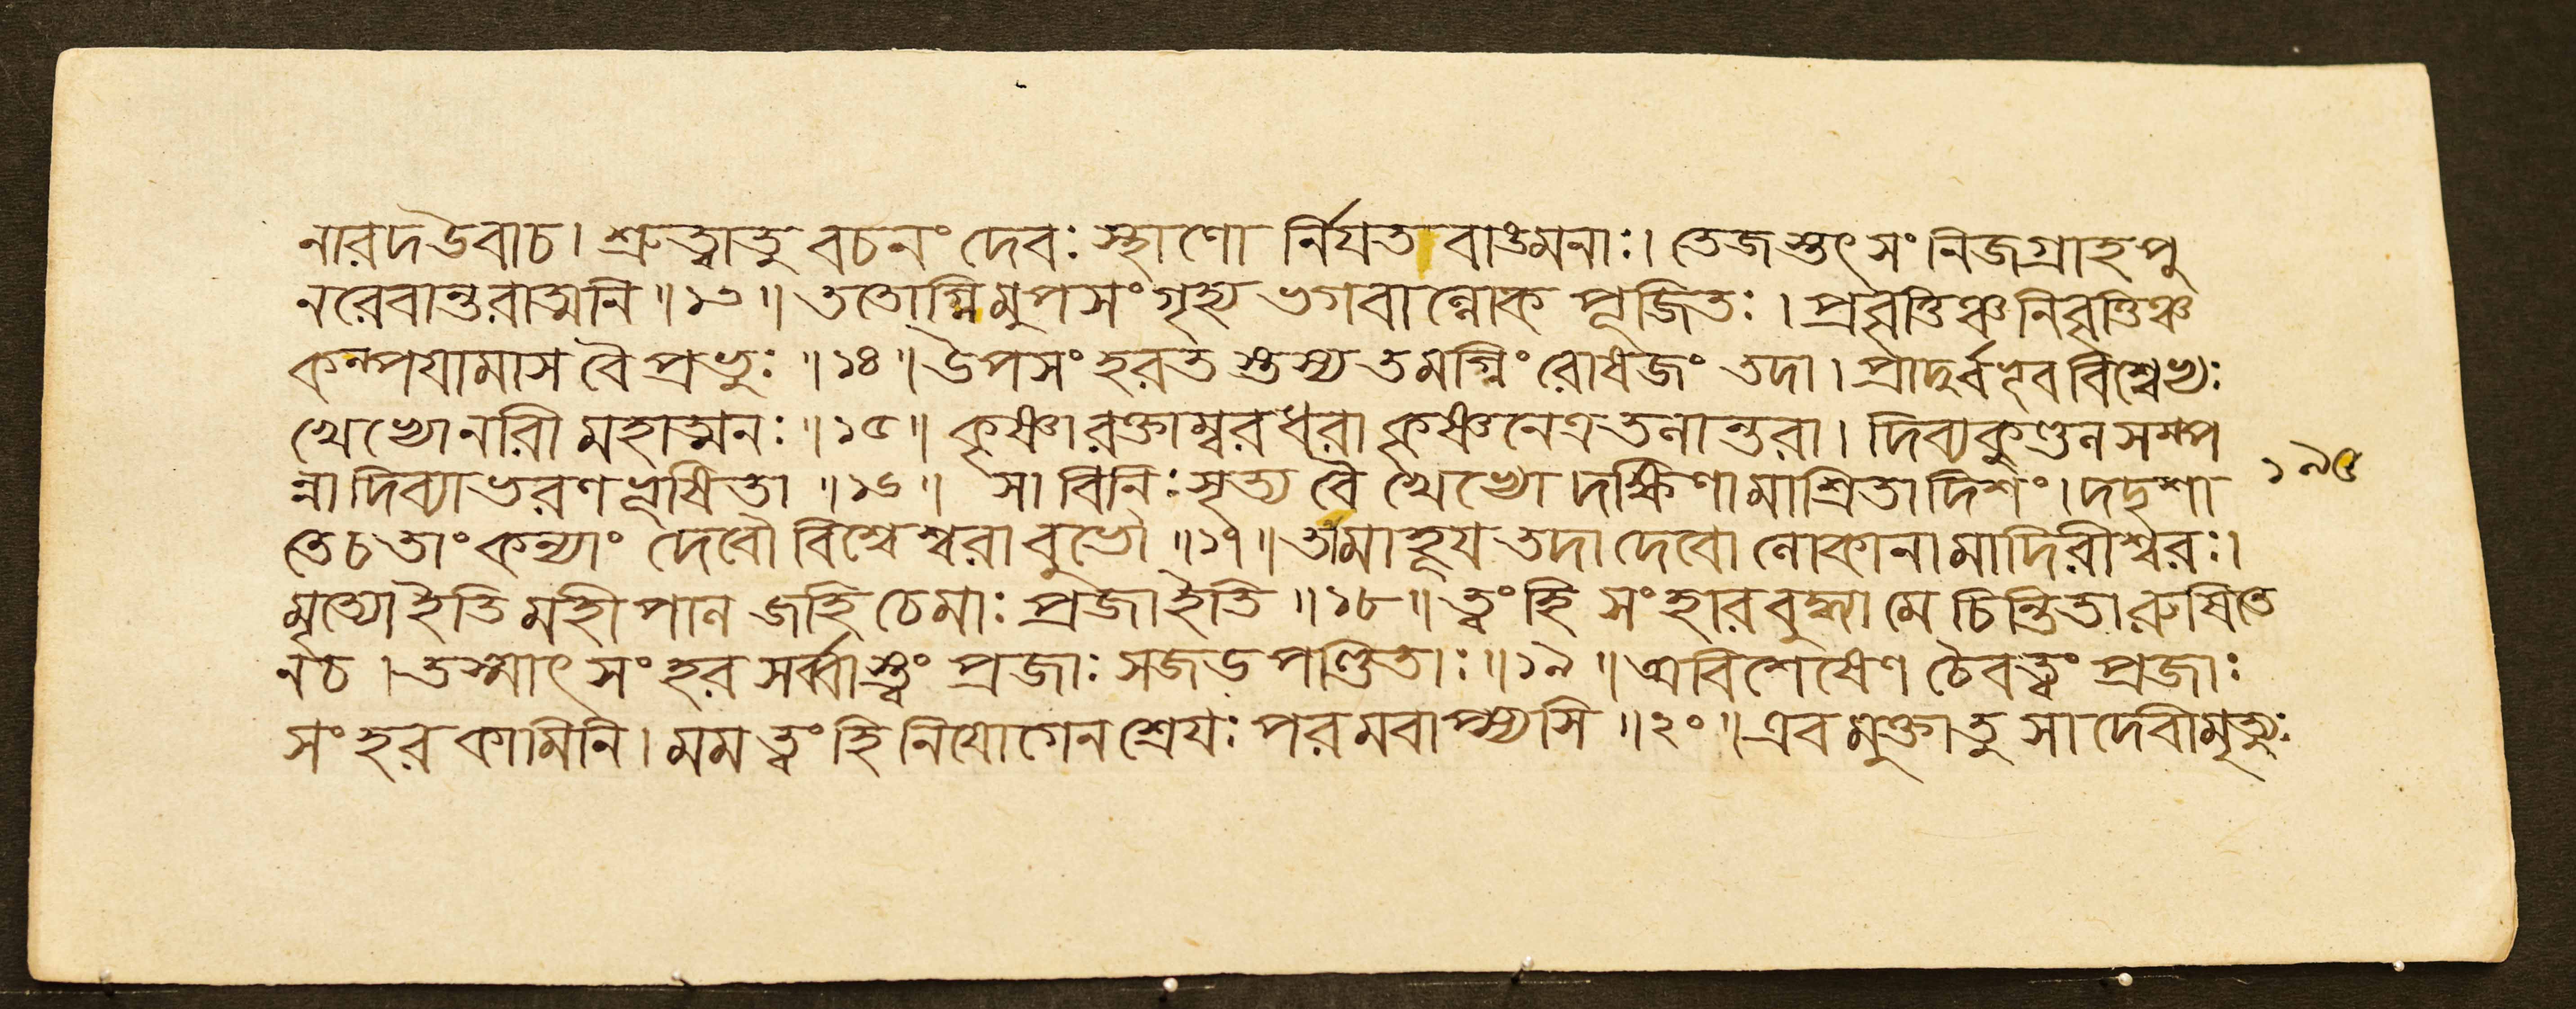 নারদ উবাচ। শ্রুত্বা তু বচনং দেবঃ স্থাণো র্নিযতবাঙমনাঃ। তেজস্তৎ সংনিজগ্রাহ পু
নরেবান্তরাত্মনি॥১৩॥ততোগ্নিমুপসংগৃহ্য ভগবান্লোক পূজিতঃ। প্রবৃত্তিঞ্চ নিবৃত্তিঞ্চ
কল্পযামাস বৈ প্রভুঃ॥১৪॥উপসংহরত স্তস্য তমগ্নিং রোষজং তদা। প্রাদুর্বভূব বিশ্বেভ্যঃ
খেভ্যো নারী মহাত্মনঃ॥১৫॥ কৃষ্ণা রক্তাম্বরধরা কৃষ্ণনেত্রতলান্তরা। দিব্যকুণ্ডল সম্প
ন্না দিব্যাভরণভূষিতা॥১৬॥ সা বিনিঃসৃত্য বৈ খেভ্যো দক্ষিণামাশ্রিতা দিশং। দদৃশা
তে চ তাং কন্যাং দেবৌ বিশ্বেশ্বরাবুভৌ॥১৭॥তামাহূয তদা দেবো লোকানামাদিরীশ্বরঃ।
মৃত্যো ইতি মহীপাল জহি চেমাঃ প্রজা ইতি॥১৮॥ত্বং হি সংহারবুদ্ধ্যা মে চিন্তিতা রুষিতে
ন চ। তস্মাৎ সংহর সর্ব্বাস্ত্বং প্রজাঃ সজড পণ্ডিতাঃ॥১৯॥অবিশেষেণ চৈব ত্বং প্রজাঃ
সংহর কামিনি। মম ত্বং হি নিযোগেন শ্রেযঃ পরমবাপ্স্যসি॥২০॥এবমুক্তা তু সা দেবী মৃত্যুঃ
১৯৫